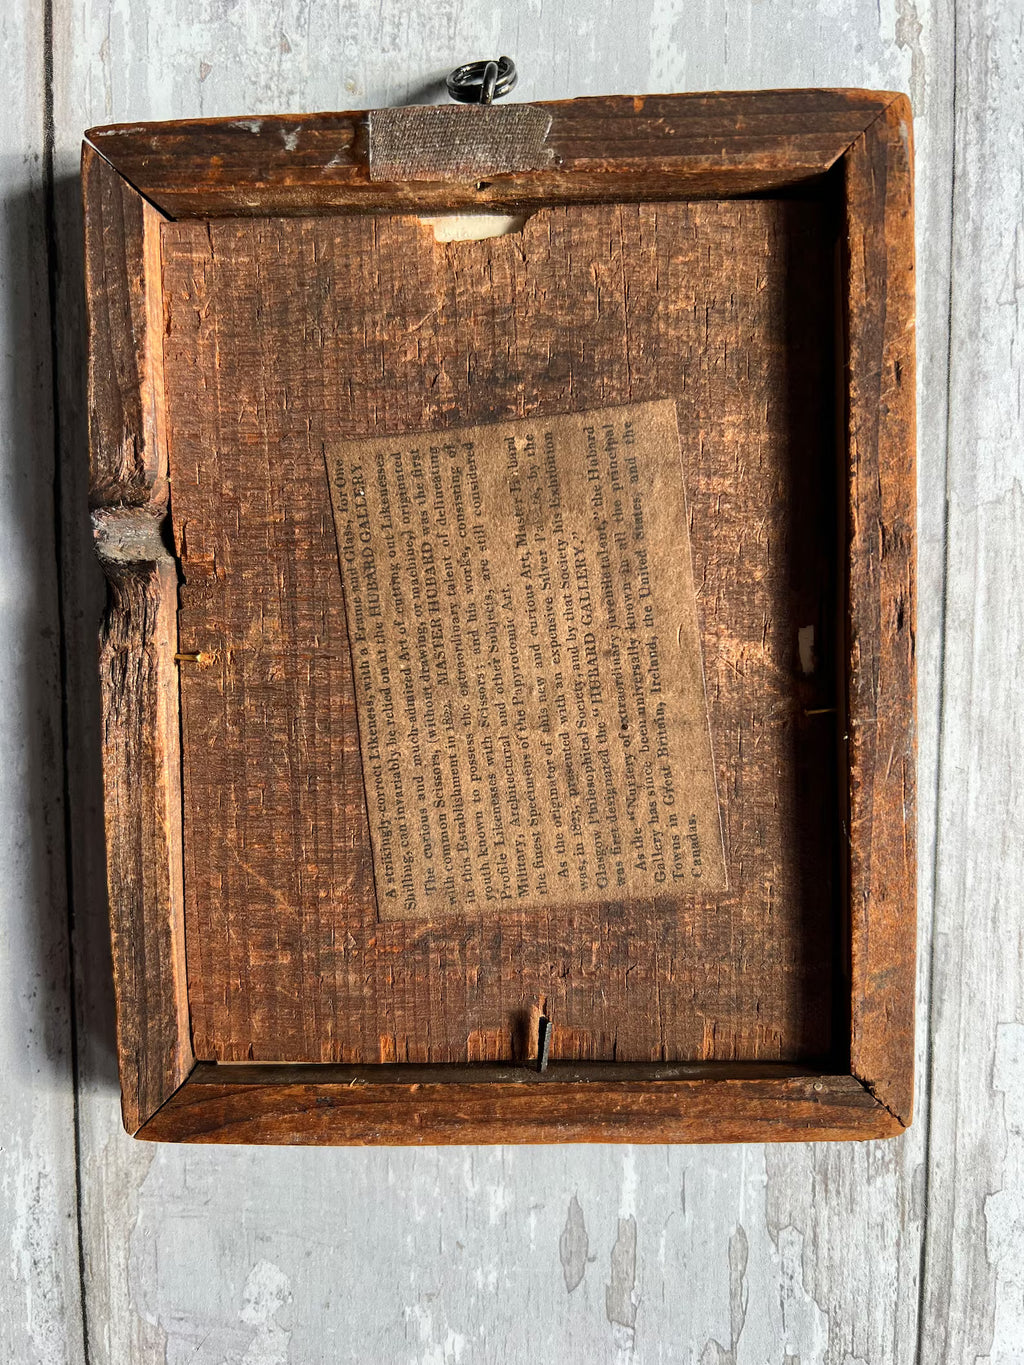 A strikingly correct Likeness, with a Frame and Glass, for One
Shilling, can invariably be relied on at the HUBARD GALLERY.
The curious and much-admired Art of cutting out Likenesses
with common Scissors, (without drawing, or machine,) originated
in this Establishment in 1822. MASTER HUBARD was the first
youth known to possess the extraordinary talent of delineating
Profile Likenesses with Scissors; and his works, consisting of
Military, Architectural and other Subjects, are still considered
the finest Specimens of the Papyrotomic Art.
As the originator of this new and curious Art, Master Hubard
was, in 1825, presented with an expensive Silver by the
Glasgow Philosophical Society, and by that Society his Exhibition
was first designated the "HUBARD GALLERY."
As the "Nursery of extraordinary juvenile talent," the Hubard
Gallery has since been universally known in all the principal
Towns in Great Britain, Ireland, the United States, and the
Canadas.